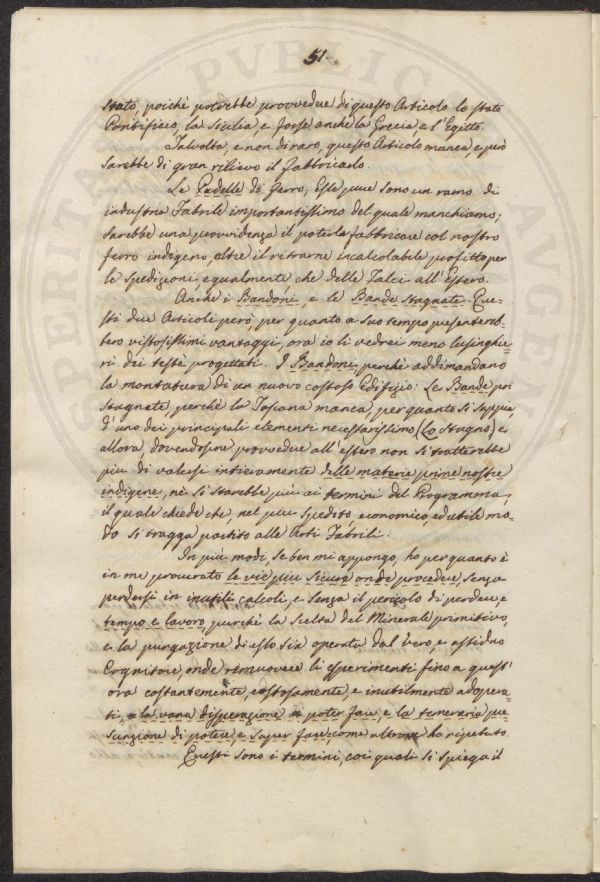 51.
Stato, poichè potrebbe provvedere di questo Articolo lo Stato
Pontificio, la Sicilia, e forse anche la Grecia, e l'Egitto.
Talvolta, e non di raro, questo Articolo manca, e però
sarebbe di gran rilievo il fabbricarlo.
Le Padelle di Ferro, Esse pure sono un ramo di
industria Fabrile importantissimo del quale manchiamo;
sarebbe una provvidenza il poterle fabbricare col nostro
ferro indigeno, oltre il ritrarne incalcolabile profitto per
le Spedizioni, egualmente che delle Falci all'Estero.
Anche i Bandoni, e le Bande Stagnate. Que-
sti due Articoli però, per quanto a suo tempo presentereb-
bero vistosissimi vantaggi, ora io li vedrei meno lusinghie-
ri dei testè progettati. I Bandoni, perchè addimandano
la montatura di un nuovo costoso Edifizio: Le Bande poi
Stagnate, perchè la Toscana manca, per quanto si sappia,
d'uno dei principali elementi necessarissimo (Lo Stagno) e
allora dovendosene provvedere all'estero non si tratterebbe
più di valersi intieramente delle materie prime nostre
indigene, nè si starebbe più ai termini del Programma,
il quale chiede che, nel più spedito economico, ed utile mo-
do si tragga partito alle Arti Fabrili.
In più modi, se ben mi appongo, ho per quanto è
in me procurato le vie più sicure onde procedere, senza
perdersi in inutili calcoli, e senza il pericolo di perdere, e
tempo e lavoro, purchè la scelta del Minerale primitivo,
e la purgazione di esso sia operata dal vero, e assiduo
Cognitore, onde remuovere li esperimenti fino a quest'
ora costantemente, costosamente, e inutilmente adopera-
ti, la vana disperazione di poter fare, e la temeraria pre-
sunzione di potere, e saper fare, come altrove ho ripetuto.
Questi sono i termini, coi quali si spiega il